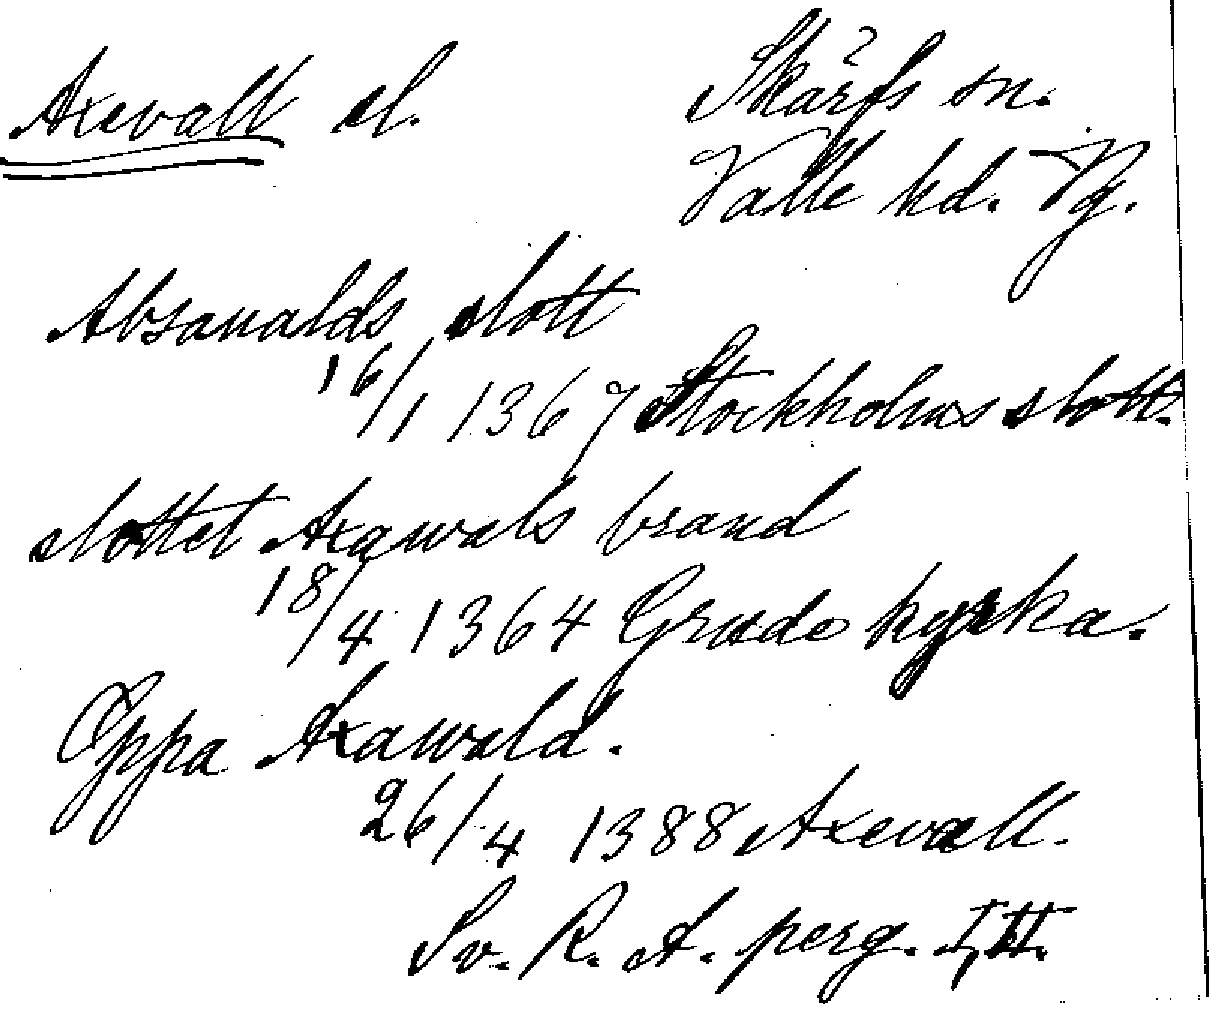 Axevall sl. Skärfs sn.
Valle hd. Vg.
Absawalds slott
16/1 1367 Stockholms slott.
slottet Axawals brand
18/4 1364 Grude kyrka.
Oppa Axawald.
26/4 1388 Axevall.
Sv. R. A. perg. I, II.